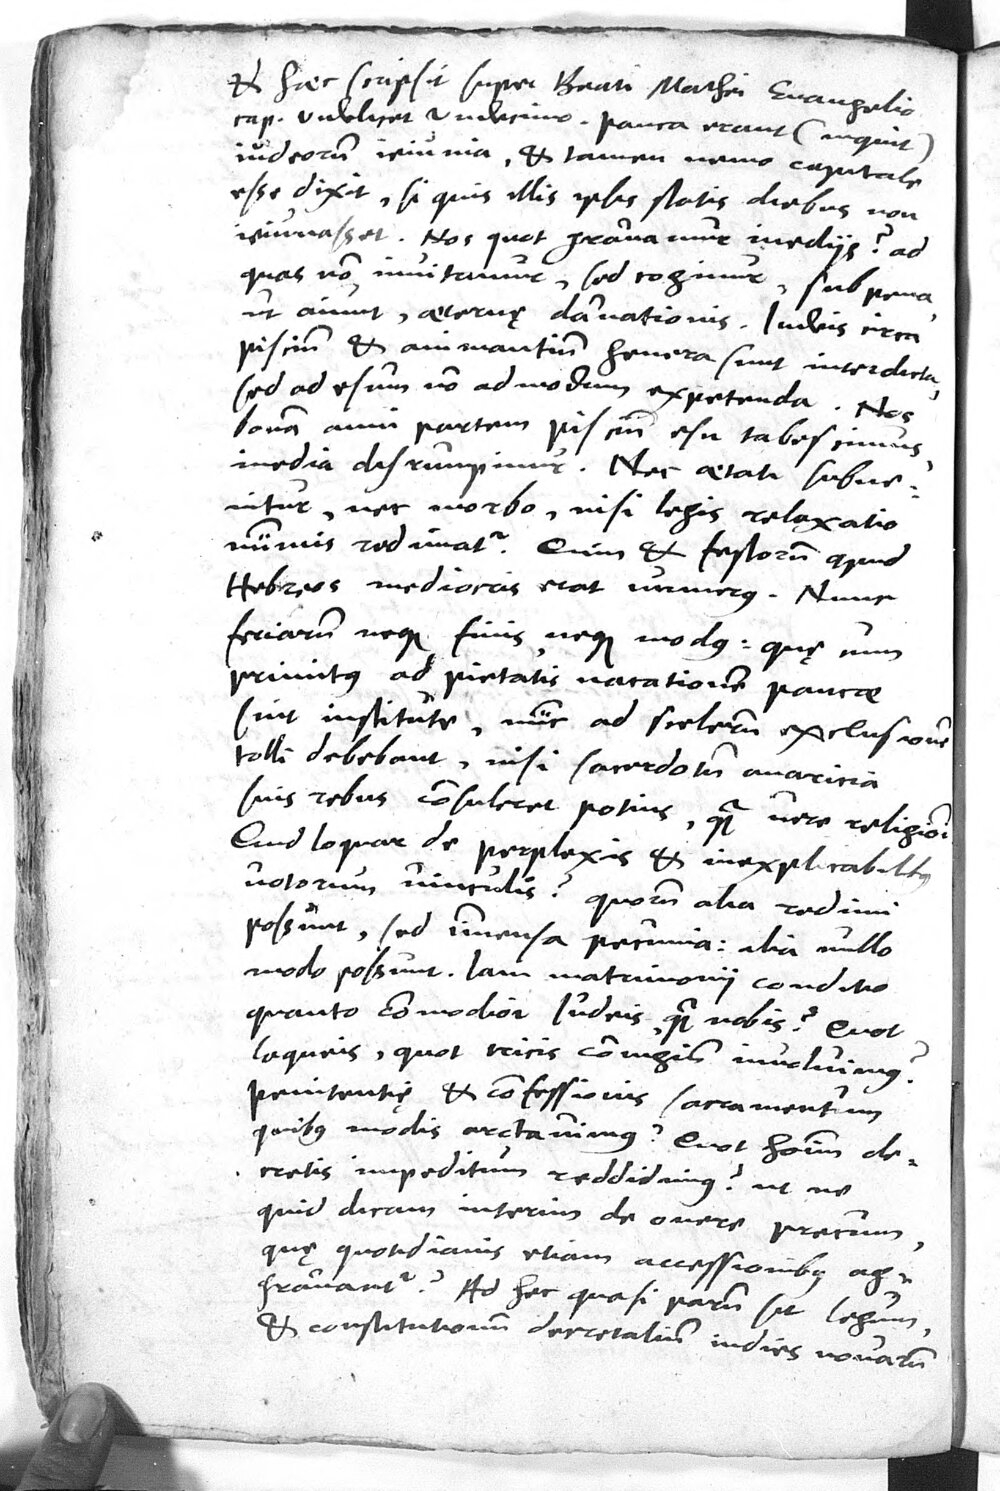 & haec scripsit super Beati Mathei Euangelio
cap. videlicet vndecimo. pauca erant (inquit)
iudeorū ieiunia, & tamen nemo capitale
esse dixit, si quis illis ipsis statis diebus non
ieiunasset. Nos quot grauamur inediis? ad
quas nō inuitamur, sed cogimur, sub pena,
ut aiunt, aeternę dānationis. Iudeis circa
pisciū & animantiū genera sunt interdicta,
sed ad esum nō admodum expetenda. Nos
bonā anni partem pisciū esu tabescimus,
inedia disrumpimur. Nec aetati subue=
nitur, nec morbo, nisi legis relaxatio
nūmis redimatr. Quin & festorū apud
Hebreos mediocris erat numerus. Nunc
feriarū neque finis, neque modus: quę cum
primitus ad pietatis vacationē paucae
sint institutę, nūc ad scelerū exclusionē
tolli debebant, nisi sacerdotū auaricia
suis rebus cōsuleret potius, quā verę religioni
Quid loquar de perplexis & inexplicabilibus
uotorum vinculis? quorū alia redimi
possunt, sed īmensa pecunia: alia nullo
modo possunt. Iam matrimonii conditio
quanto cōmodior Iudeis quā nobis? Quot
laqueis, quot tricis cōiugiū inuoluimus?
penitentię & cōfessionis sacramentum
quibus modis arctauimus? Quot hoīm de=
cretis impeditum reddidimus? ut ne
quid dicam interim de onere precum,
quę quotidianis etiam accessionibus ag=
grauantr? Ad hec quasi parū sit legum,
& constitutionū decretaliū indies nouarū